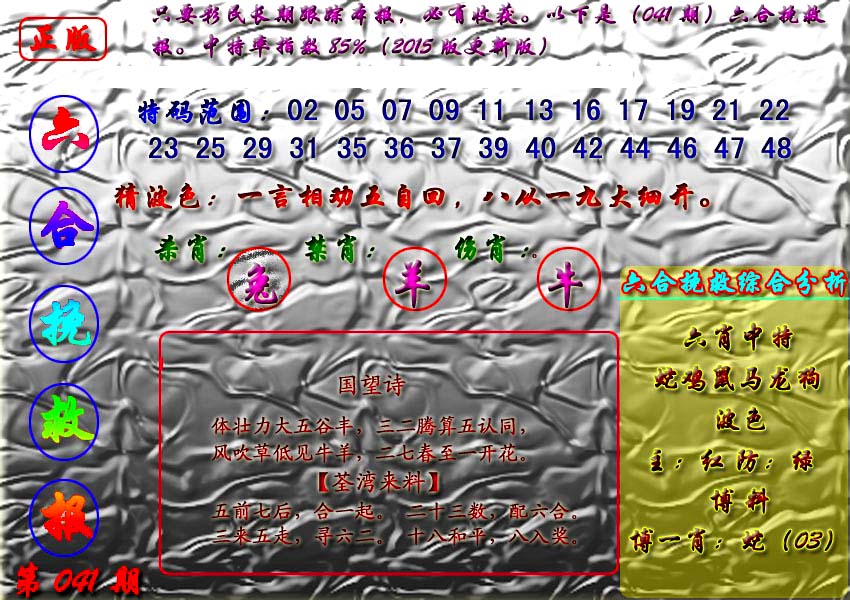 正版
只要彩民长期跟踪本报，必有收获。以下是（041期）六合挽救
报。中特率指数85%（2015版更新版）
六合挽救报
第041期
特码范围：02 05 07 09 11 13 16 17 19 21 22
23 25 29 31 35 36 37 39 40 42 44 46 47 48
猜波色：一言相劝五自回，八从一九大细开。
杀肖：兔 禁肖：羊 伤肖：牛
国望诗
体壮力大五谷丰，三二腾算五认同，
风吹草低见牛羊，二七春至一开花。
【荃湾来料】
五前七后，合一起。 二十三数，配六合。
三来五走，寻六二。 十八和平，八入奖。
六合挽救综合分析
六肖中特
蛇鸡鼠马龙狗
波色
主：红防：绿
博料
博一肖：蛇（03）